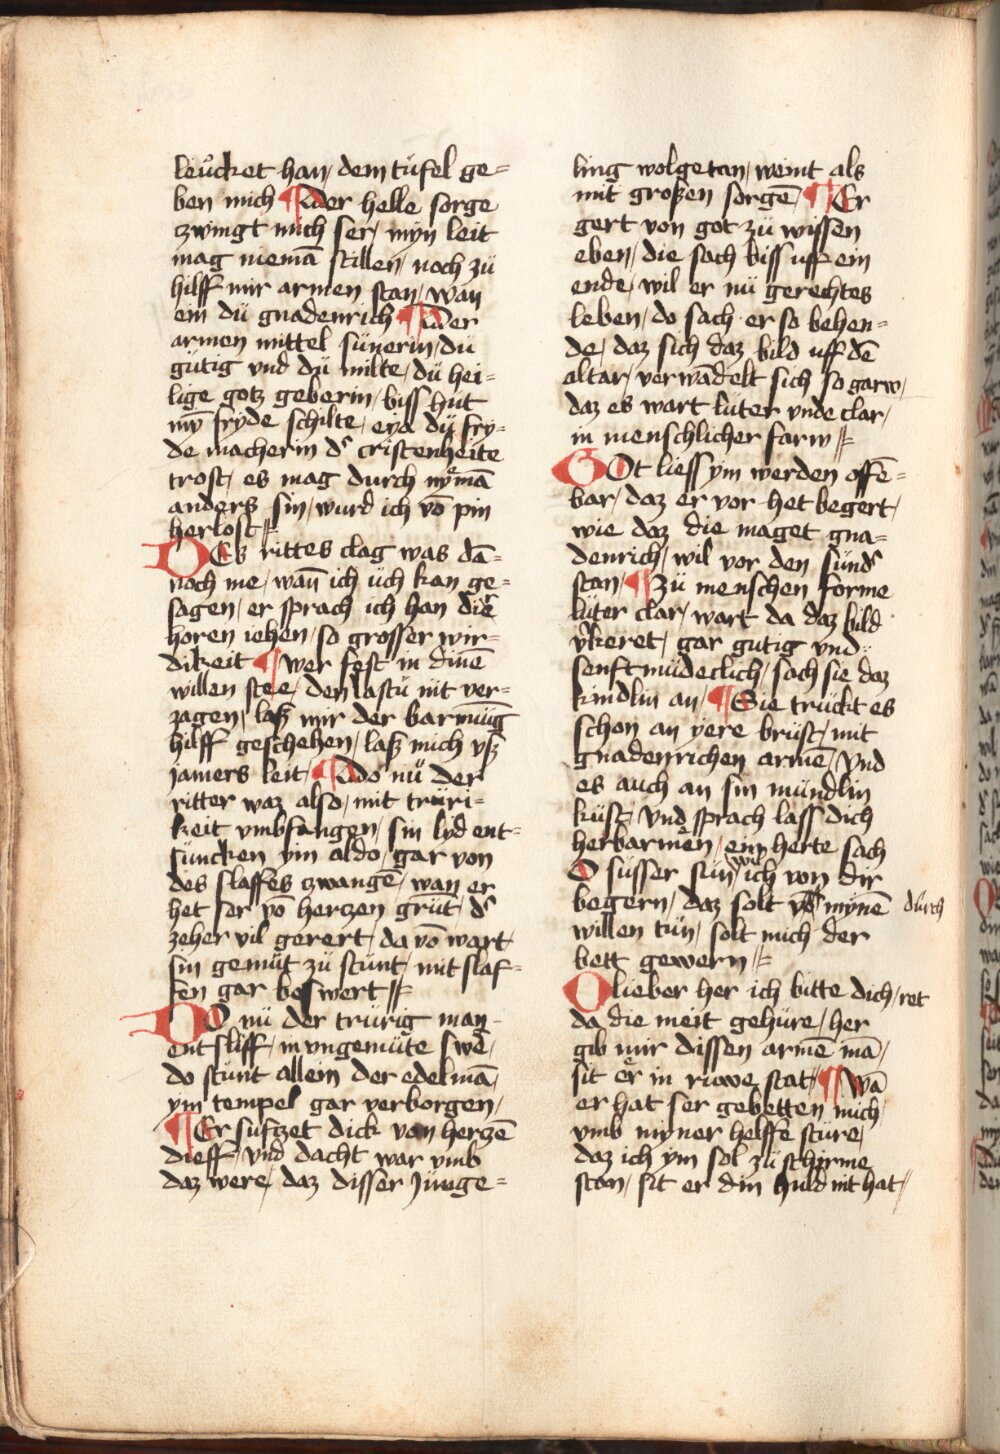 leucket han / dem tüfel ge=
ben mich ¶ der helle sorge
zwingt mich ser / myn leit
mag niemā stillen / noch zü
hilff mir armen stan / wan
ein dü gnadenrich ¶ der
armen mittel sünerin / dü
gütig vnd dü milte / dü hei=
lige gotz geberin / biss hüt
mȳ fryde schilte / eya dü fry=
de macherin dˢ cristenheite
trost / es mag durch nyͤmā
anders sin / wurd ich vō pin
herlost //
DEs rittes clag was dā=
noch me / wan̄ ich üch kan ge=
sagen / er sprach ich han dirͤ
horen iehen / so grosser wir=
dikeit ¶ wer fest in dinē
willen stee / den lastü nit ver=
zagen / laß mir der barmüng
hilff geschehen / laß mich vß
jamers leit / ¶ do nü der
ritter waz also / mit trüri=
keit vmbfangen / sin lyd ent=
süncken ym aldo / gar von
des slaffes zwangē / wan er
het ser vō hertzen grüt / dˢ
zeher vil gerert / da vō wart
sin gemüt zü stünt / mit slaf=
fen gar beswert //
DO nü der trürig man
entsliff / in vngemüte swē /
do stünt allein der edelmā /
ym tempel gar verborgen /
¶ Er süftzet dick von hertzē
dieff / vnd dacht war vmb
daz were / daz disser jünge=
ling wolgetan / weint als
mit großen sorgē / ¶ Er
gert von got zü wissen
eben / die sach biss uff ein
ende / wil er nü gerechtes
leben / do sach er so behen=
de / daz sich daz bild uff dē
altar / verwādelt sich so garw /
daz es wart lüter vnde clar /
in menschlicher farw //
GOt liess ym werden offē=
bar / daz er vor het begert /
wie daz die maget gna=
denrich / wil vor den sündˢ
stan / ¶ zü menschen forme
lüter clar / wart da daz bild
vˢkeret / gar gutig vnd
senftmüdeclich / sach sie daz
kindlin an / ¶ Sie trückt es
schon an yere brüst / mit
gnadenrichen armē / vnd
es auch an sin mündlin
küst / vnd sprach lass dich
herbarmen / ein herte sach
O süsser sün wil ich von dir
begern / daz solt vō mynē dürch
willen tün / solt mich der
bett gewern //
O lieber her ich bitte dich / ret
da die meit gehüre / her
gib mir dissen armē mā /
sit er in rüwe stat / ¶ wā
er hat ser gebetten mich
vmb myner helffe stüre /
daz ich ym sol zü schirme
stan / sit er din huld nit hat //